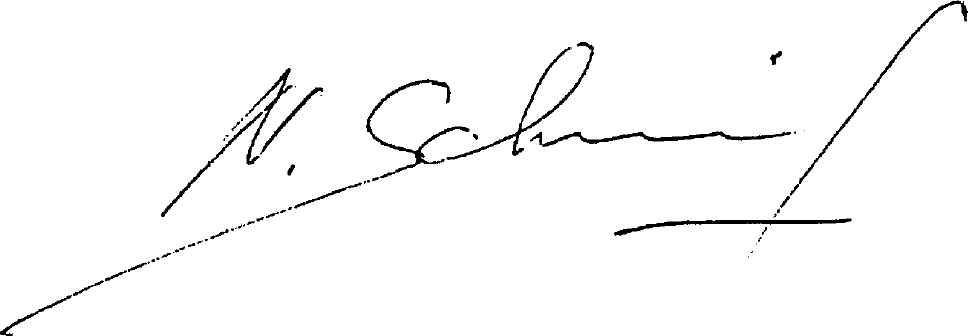 N. Schmid